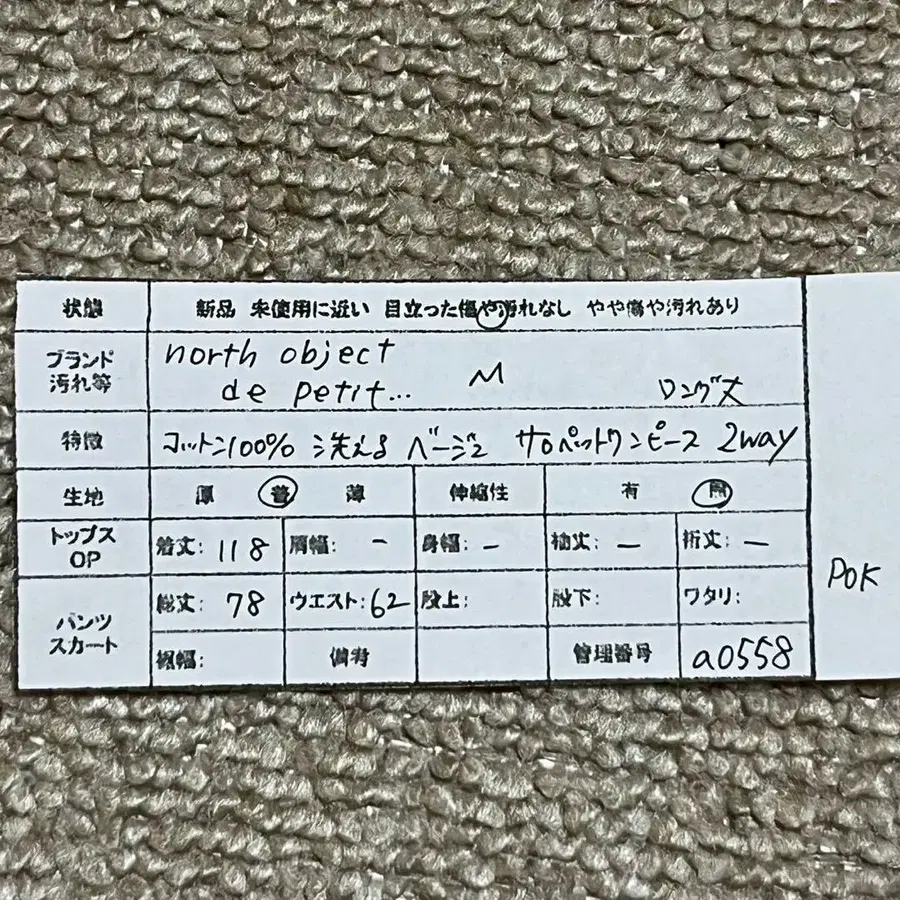 状態 新品 未使用に近い 目立った傷や汚れなし やや傷や汚れあり
ブランド north object
汚れ等 de petit... M ロング丈
特徴 コットン100% 洗える ベージュ サロペットワンピース 2way
生地 厚 普 薄 伸縮性 有 無
トップス
OP 着丈: 118 肩幅: - 身幅: - 袖丈: - 裄丈: -
パンツ
スカート 総丈: 78 ウエスト: 62 股上: 股下: ワタリ:
裾幅: 備考 管理番号 a0558
POK